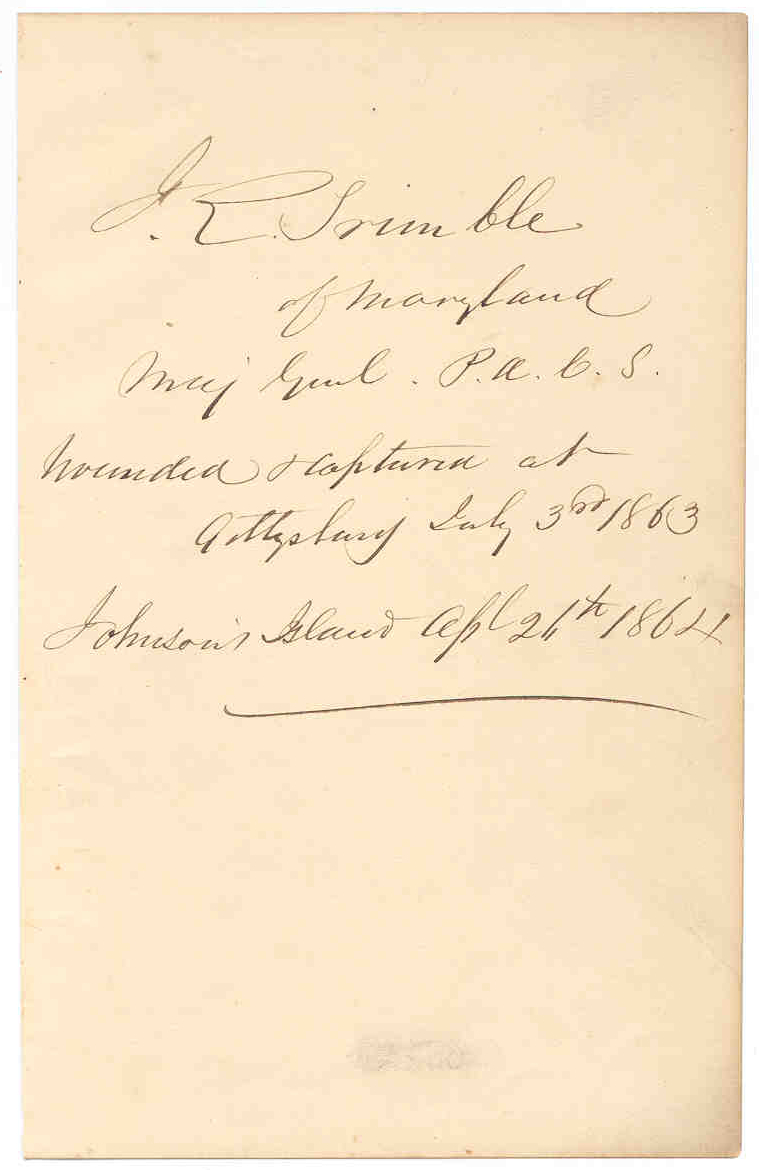 I. R. Trimble
of Maryland
Maj Genl. P. A. C. S.
Wounded & captured at
Gettysburg July 3rd 1863
Johnson's Island Apl 26th 1864